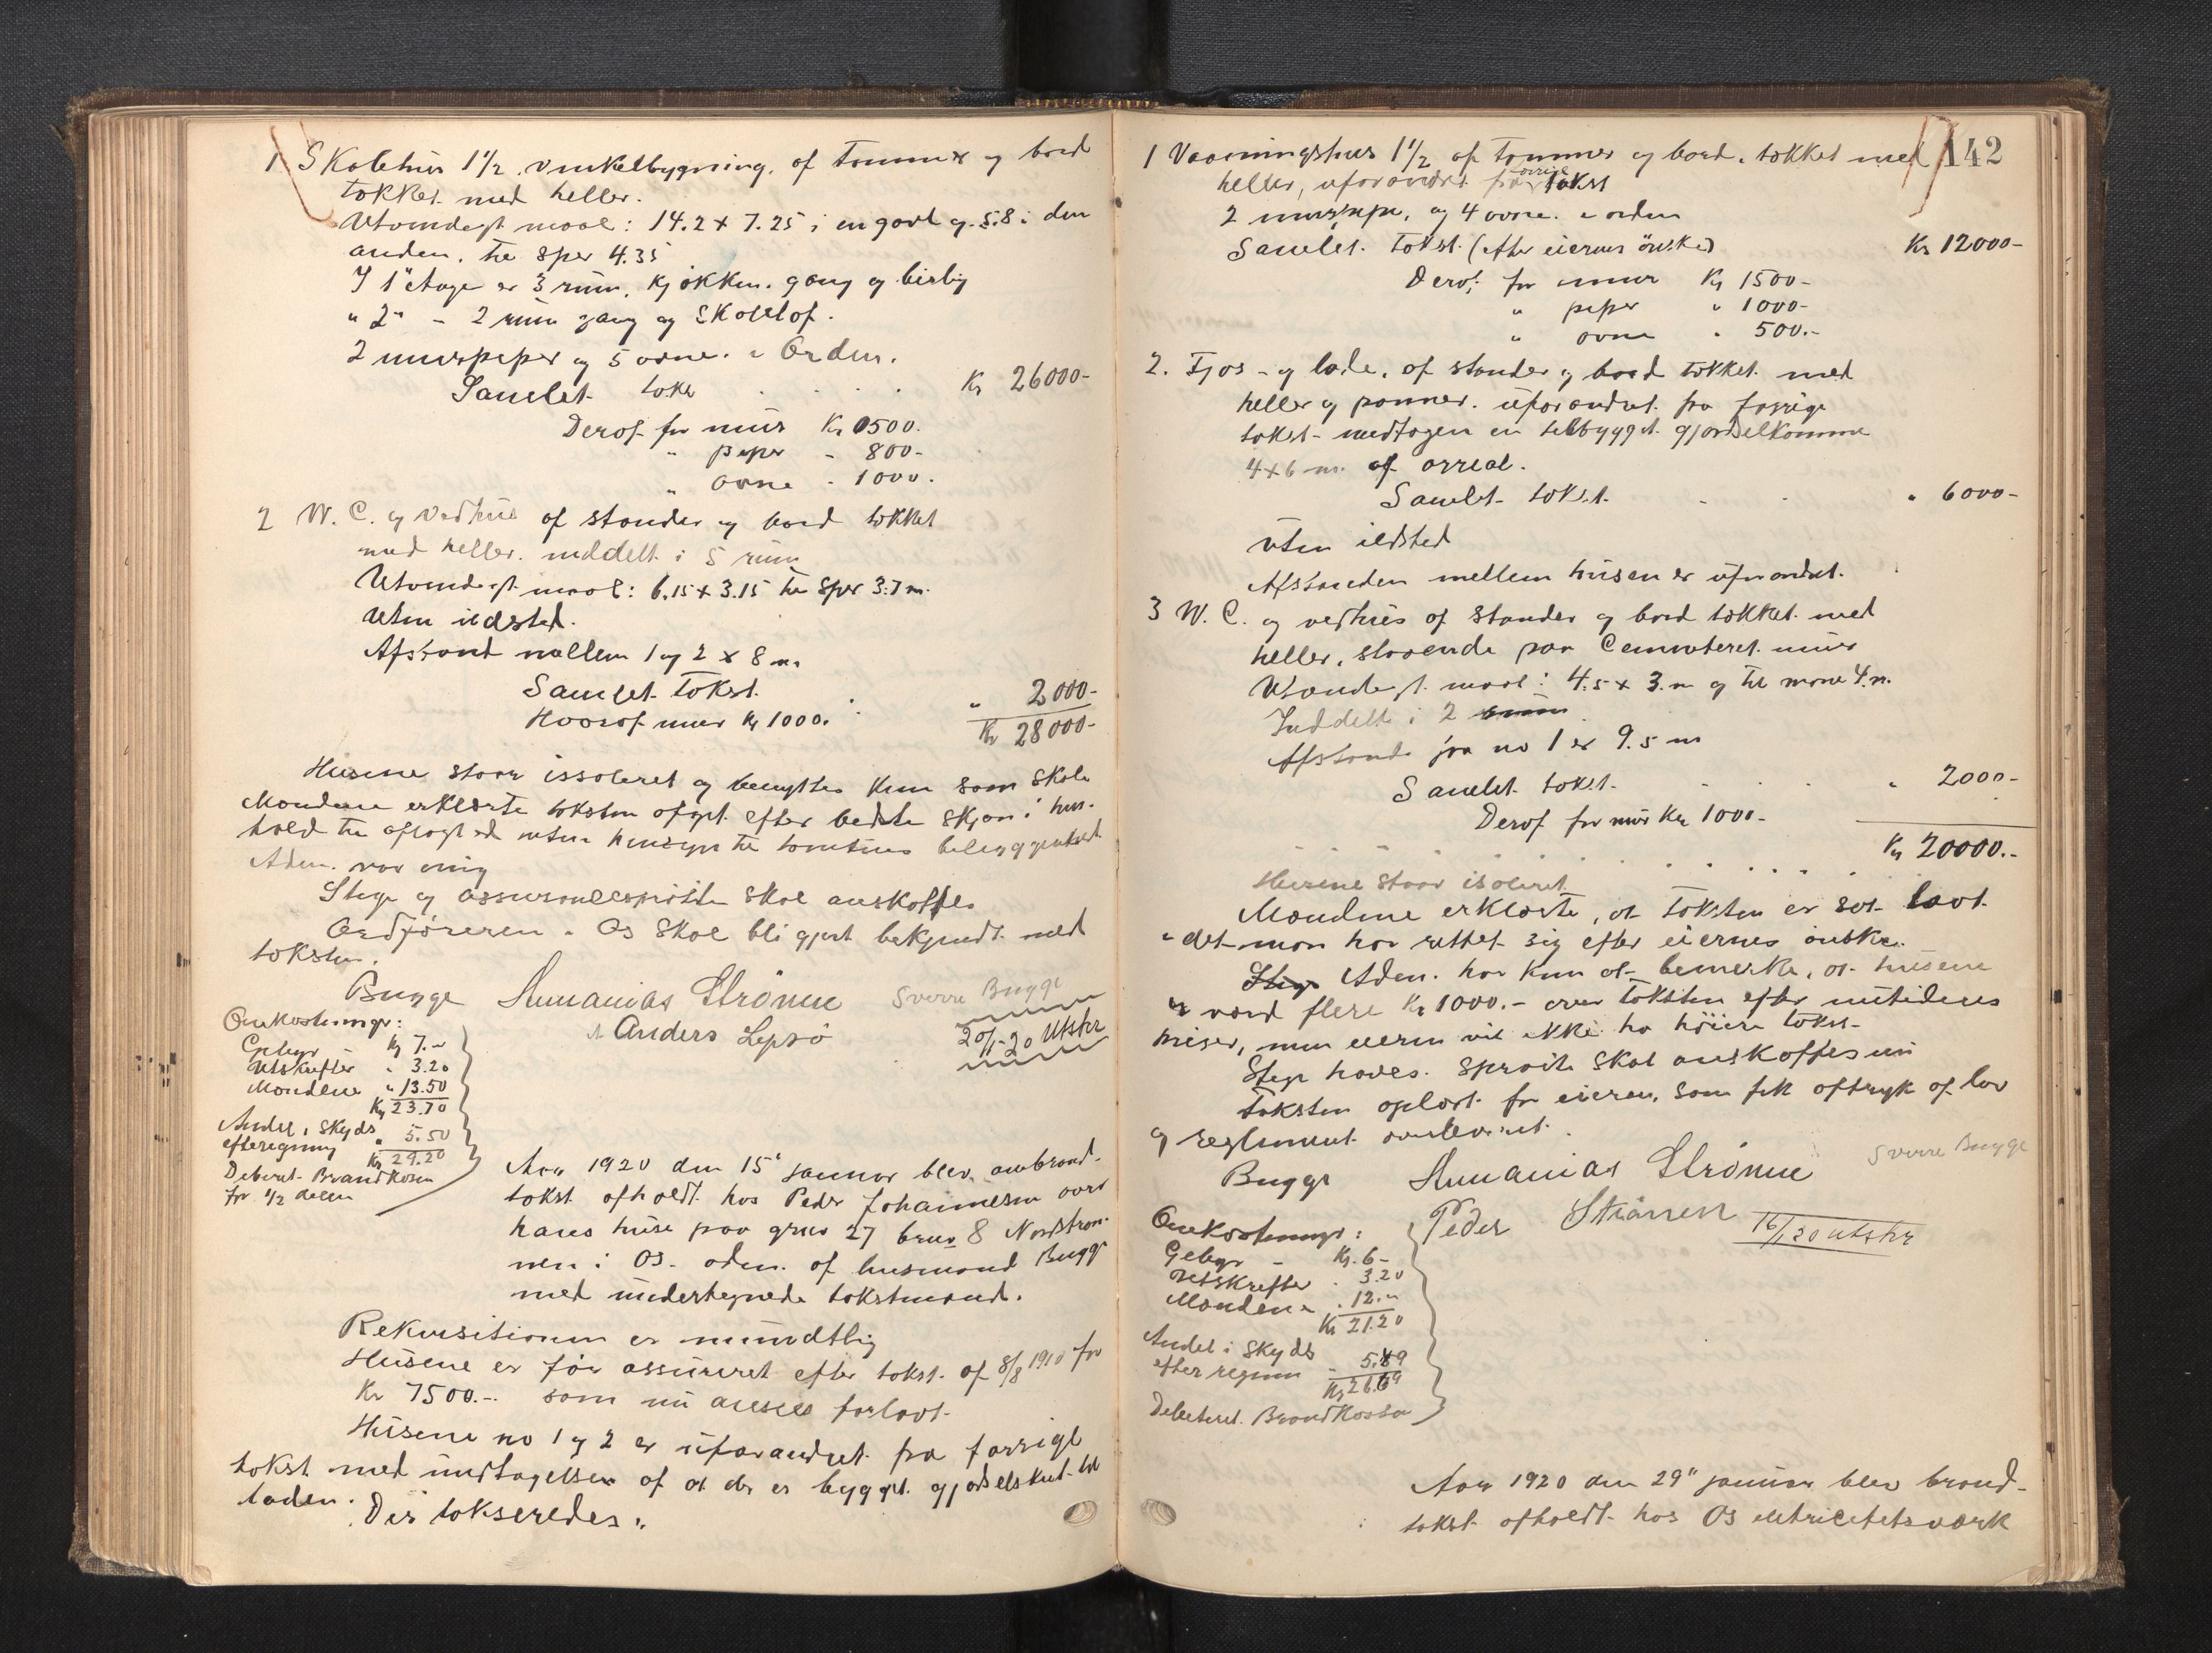 1 Skolehus 1 1/2 vinkelbygning, af tømmer og bord
tækket med heller.
Utvendigt maal: 14.2 x 7.25 i en gavl og 5.8 i den
anden, til spær 4.35
I 1" etage er 3 rum, kjøkken, gang og bislag
" 2" - 2 rum gang og skolelof.
2 murpiper og 5 ovne i orden.
Samlet takst Kr 26000-
Deraf for mur Kr 1500.
" piper - 800-
" ovne - 1000.
2 W. C. og vedhus af stander og bord tækket
med heller. inddelt i 5 rum
Utvendigt maal: 6.15 x 3.15 til spær 3.7 m.
Uten ildsted.
Afstand mellem 1 og 2 8 m.
Samlet takst " 2000-
Hvoraf mur Kr 1000. Kr 28000-
Husene staar issoleret og benyttes kun som skole
Mændene erklærte taksten afgit efter bedste skjøn i hen-
hold til aflagt ed uten hensyn til tomtens beliggenhed
Adm. var enig
Stige og assurancesprøite skal anskaffes
Ordføreren i Os skal bli gjort bekjendt med
taksten.
Bugge Annanias Strønne Sverre Bugge
Anders Lepsø
20/1-20 Utskr
Omkostninger:
Gebyr - Kr 7.-
Utskrifter " 3.20
Mændene " 13.50
Kr 23.70
Andel i skyds
efterregning " 5.50
Kr 29.20
Deberet Brandkassen
for 1/2 delen
Aar 1920 den 15' januar blev ombrand-
takst afholdt hos Peder Johannesen over
hans huse paa grno 27 brno 8 Nordstrøn-
nen i Os - adm. af lensmand Bugge
med undertegnede takstmænd.
Rekvisitionen er mundtlig
Husene er før assureret efter takst af 8/8 1910 for
Kr 7500.- som nu ansees forlavt.
Husene no 1 og 2 er uforandret fra forrige
takst med undtagelsen af at der er bygget gjødselskut til
laden. Der takseredes:
142
1 Vaaningshus 1 1/2 af tømmer og bord, tækket med
heller, uforandret fra forrige takst
2 murpiper, og 4 ovne i orden
Samlet takst (efter eierens ønske) Kr 12000-
Deraf for mur Kr 1500-
" piper " 1000-
" ovne " 500.-
2. Fjøs - og lade, af stander og bord tækket med
heller og panner. uforandret fra forrige
takst - undtagen en tilbygget gjødselkomme
4x6 m. af areal.
Samlet takst " 6000-
uten ildsted
Afstanden mellem husene er uforandret.
3 W. C. og vedhus af stander og bord tækket med
heller, staaende paa Cementeret mur
Utvendigt maal: 4.5 x 3. m og til møne 4. m.
Inddelt i 2 rum
Afstand fra no 1 er 9.5 m
Samlet takst " 2000-
Deraf for mur Kr 1000-
Kr 20000.-
Husene staar isoleret
Mændene erklærte, at taksten er sat lavt
i det man har rettet sig efter eierens ønske.
Stige Adm. har kun at bemerke, at husene
er værd flere Kr 1000.- over taksten efter nutidens
priser, men eieren vil ikke ha høiere takst-
Stige haves. Sprøite skal anskaffes nu
taksten oplæst for eieren, som fik aftryk af lov
og reglement overleveret.
Bugge Annanias Strønne Sverre Bugge
Peder Strønen 16/1 20 utskr
Omkostninger:
Gebyr - Kr. 6-
Utskrifter " 3.20
Mændene " 12.-
Kr 21.20
Andel i skyds
efter regnin - 5.49
Kr 26.69
Debeteret Brandkassa
Aar 1920 den 29" januar blev brand-
takst afholdt hos Os elektricitetsværk